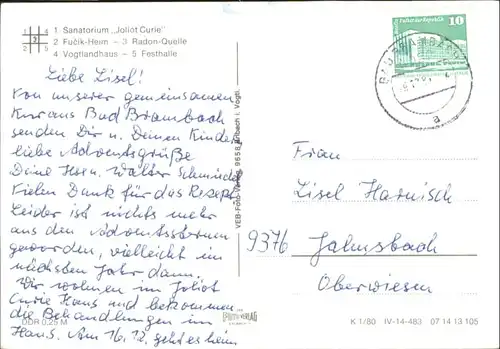 1 Sanatorium „Joliot Curie"
2 Fučik-Heim – 3 Radon-Quelle
4 Vogtlandhaus – 5 Festhalle
Liebe Lisel!
Von unserer gemeinsamen
Kur aus Bad Brambach
senden Dir u. Deinen Kindern
liebe Adventsgrüße
Deine Herm. Walter Schmidt
Vielen Dank für das Rezept
Leider ist nichts mehr
aus den Adventsstern
geworden, vielleicht im
nächsten Jahr dann.
Wir wohnen im Joliot
Curie Haus und bekommen
die Behandlungen im
Haus. Am 16. 12. geht es heim
DDR 0,25 M
VEB Foto-Verlag 9658 Erlbach i. Vogtl.
10
a
Frau
Lisel Harnisch
9376 Jahnsbach
Oberwiesen
K 1/80 IV-14-483 07 14 13 105